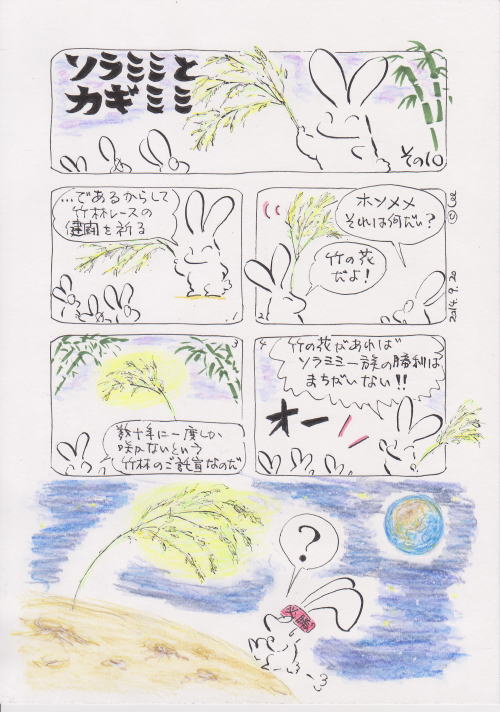 ソラミミと
カギミミ
その10
…であるからして
竹林レースの
健闘を祈る
1
ホソメメ
それは何だい?
竹の花
だよ!
2
2014.9.20
3
数十年に一度しか
咲かないという
竹林のご託宣なのだ
4
竹の花があれば
ソラミミ一族の勝利は
まちがいない!!
オー
?
必勝